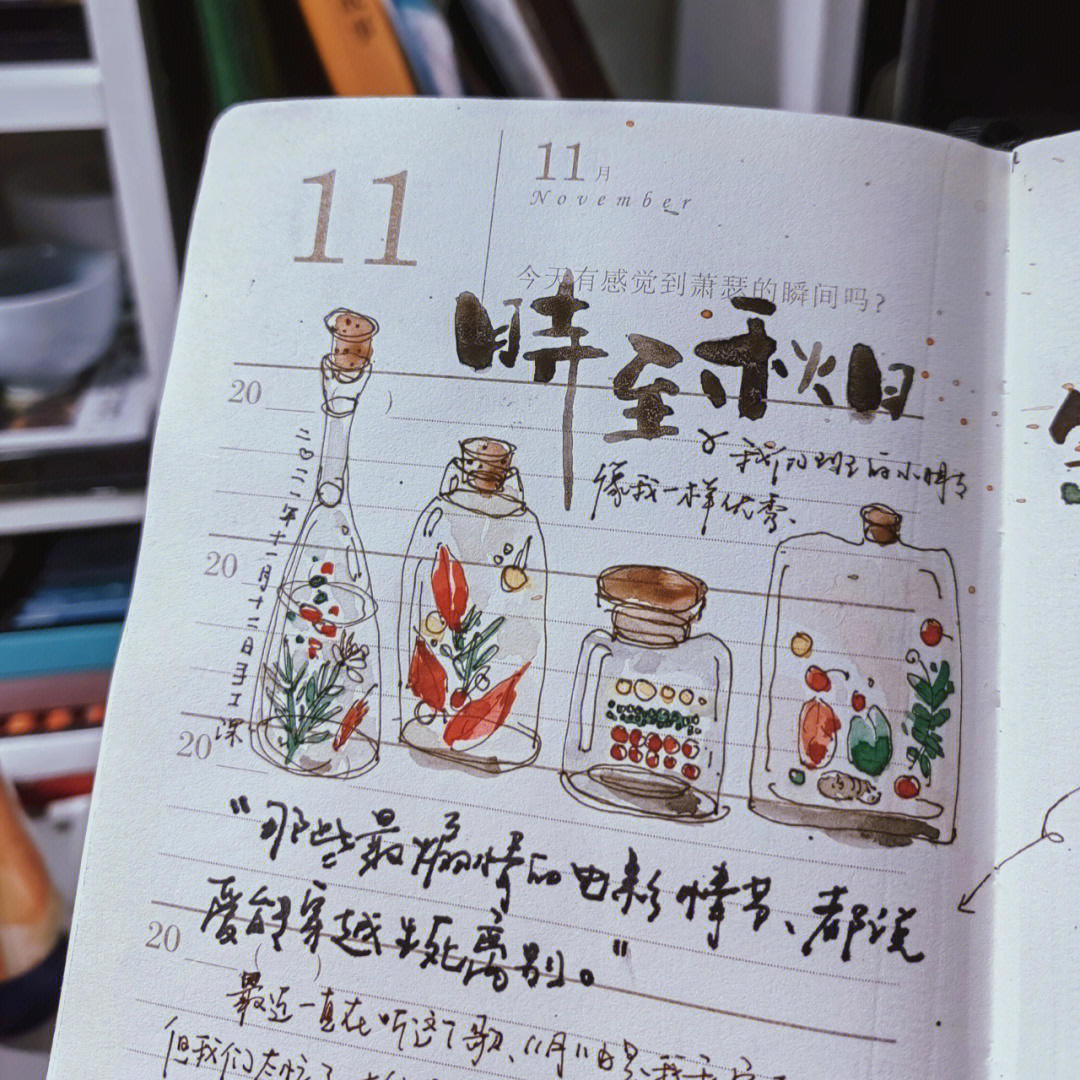 11
11月
November
今天有感觉到萧瑟的瞬间吗?
時至秋日
像我一样优秀、
20
20
20
20
二〇二二年十一月十二日
深
"那些最煽情的电影情节、都说
爱能穿越生死离别。"
最近一直在听这个歌、11月11日是
但我们太忙了